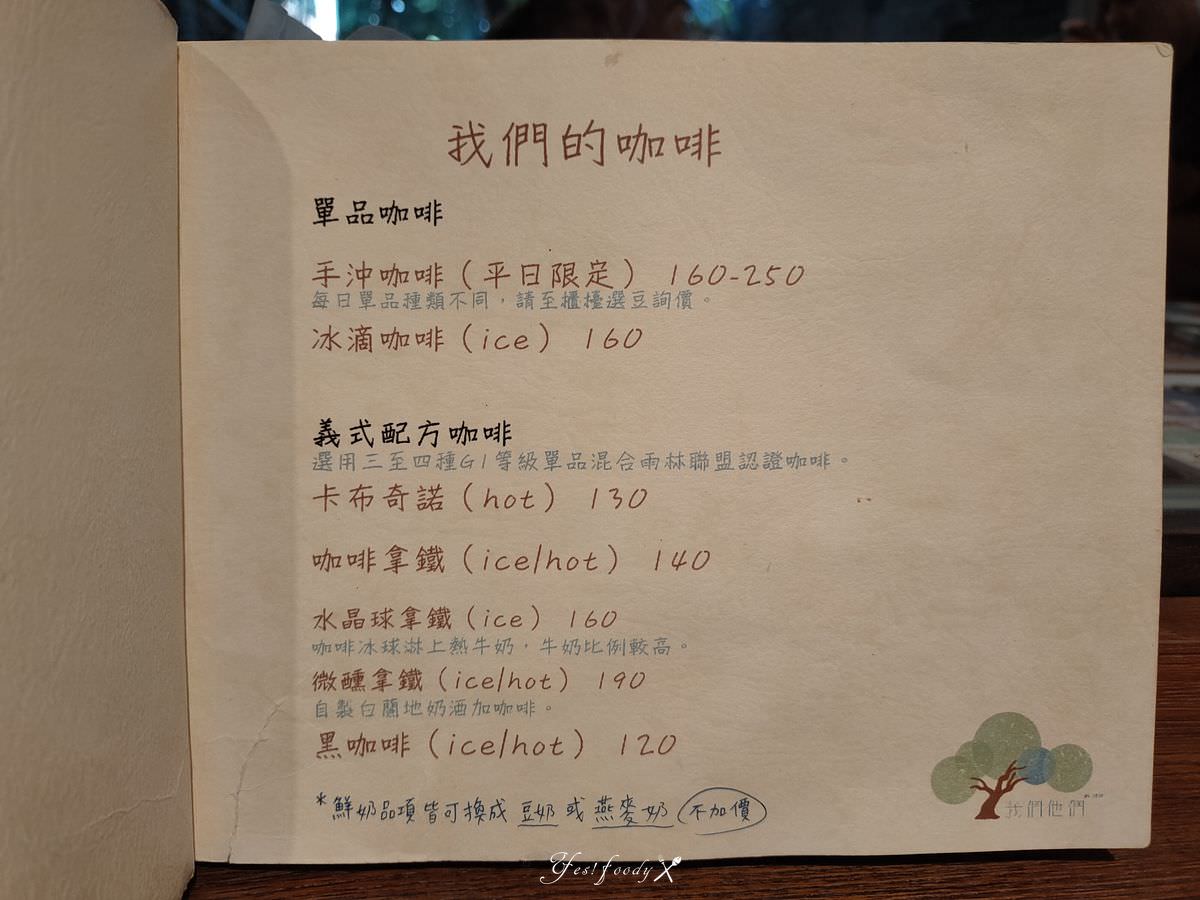 我們的咖啡
單品咖啡
手沖咖啡(平日限定) 160-250
每日單品種類不同，請至櫃檯選豆詢價。
冰滴咖啡(ice) 160
義式配方咖啡
選用三至四種G1等級單品混合雨林聯盟認證咖啡。
卡布奇諾(hot) 130
咖啡拿鐵(ice/hot) 140
水晶球拿鐵(ice) 160
咖啡冰球淋上熱牛奶，牛奶比例較高。
微醺拿鐵(ice/hot) 190
自製白蘭地奶酒加咖啡。
黑咖啡(ice/hot) 120
*鮮奶品項皆可換成 豆奶 或 燕麥奶 不加價
我們他們
Yes!foody